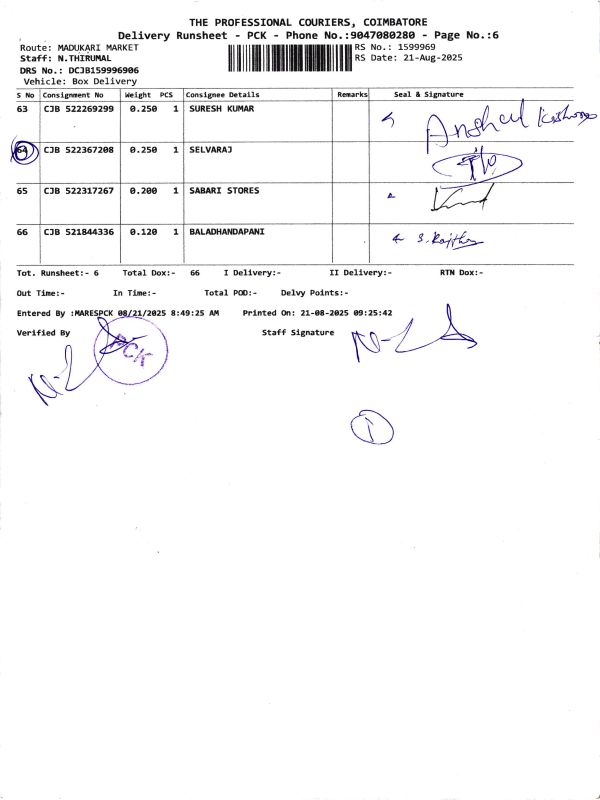 THE PROFESSIONAL COURIERS, COIMBATORE
Delivery Runsheet - PCK - Phone No.:9047080280 - Page No.:6
Route: MADUKARI MARKET RS No.: 1599969
Staff: N.THIRUMAL RS Date: 21-Aug-2025
DRS No.: DCJB159996906
Vehicle: Box Delivery
S No Consignment No Weight PCS Consignee Details Remarks Seal & Signature
63 CJB 522269299 0.250 1 SURESH KUMAR
64 CJB 522367208 0.250 1 SELVARAJ
65 CJB 522317267 0.200 1 SABARI STORES
66 CJB 521844336 0.120 1 BALADHANDAPANI
Tot. Runsheet:- 6 Total Dox:- 66 I Delivery:- II Delivery:- RTN Dox:-
Out Time:- In Time:- Total POD:- Delvy Points:-
Entered By :MARESPCK 08/21/2025 8:49:25 AM Printed On: 21-08-2025 09:25:42
Verified By Staff Signature
PCK